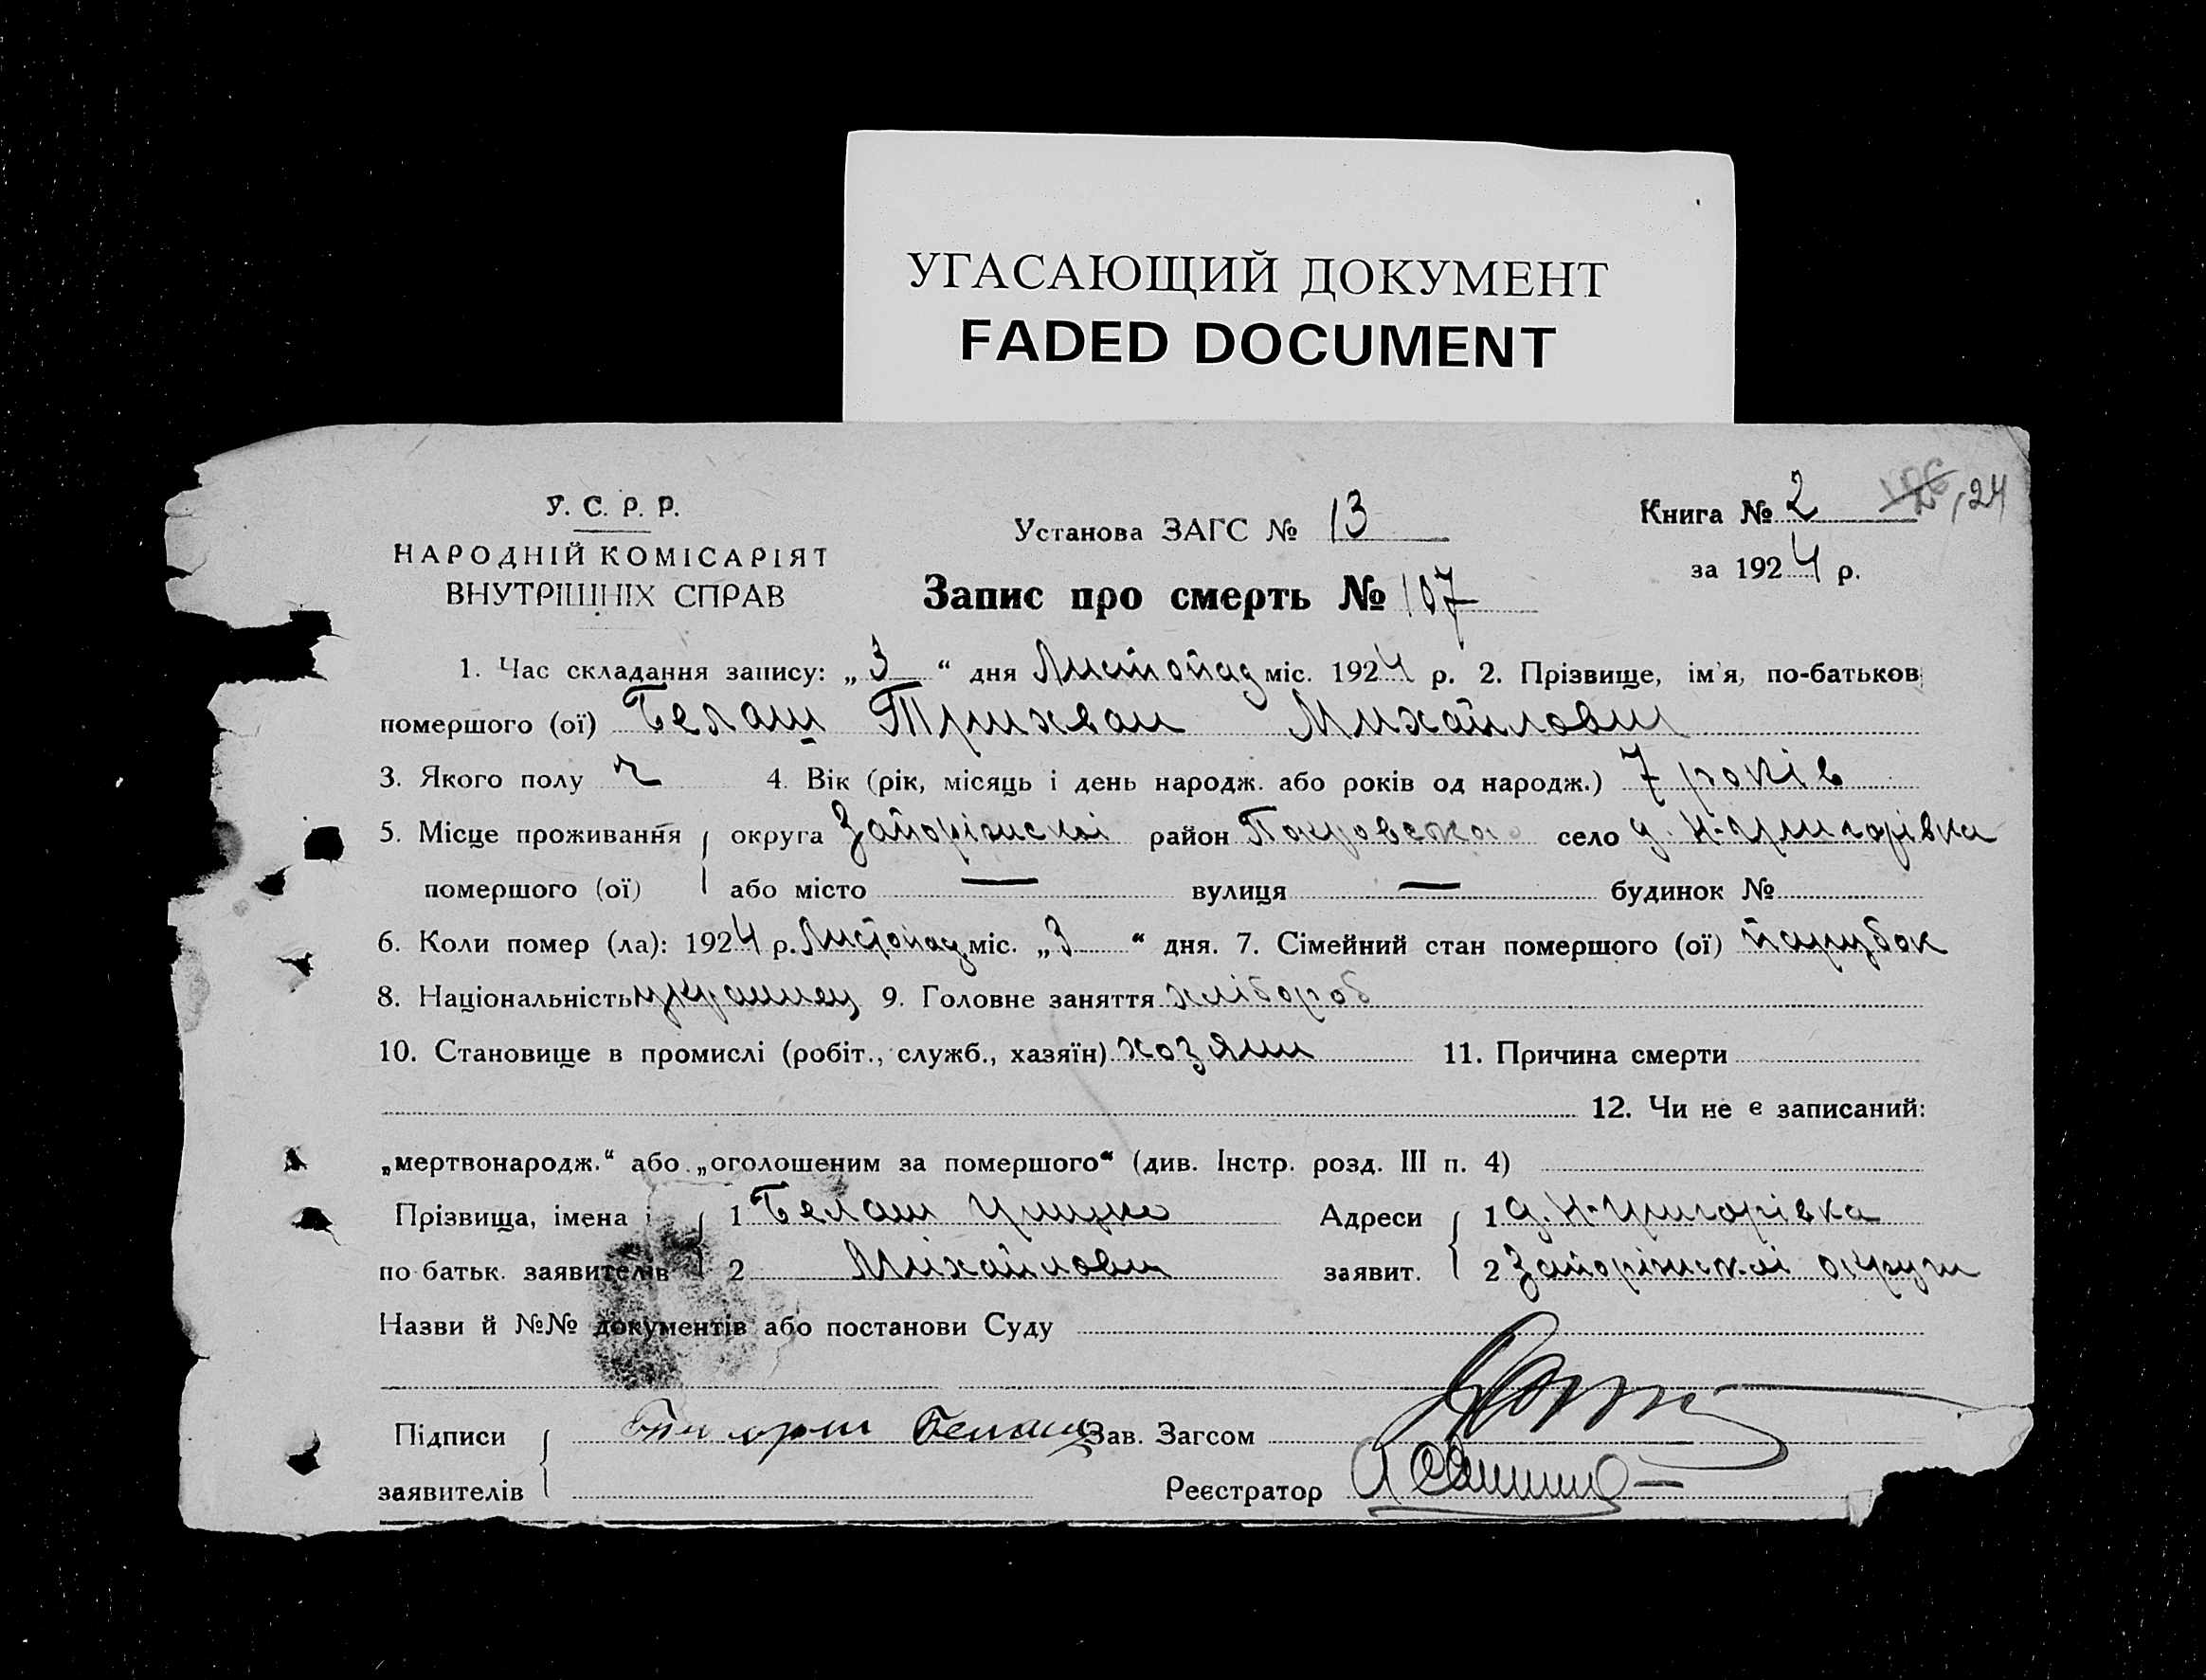 УГАСАЮЩИЙ ДОКУМЕНТ
FADED DOCUMENT
У. С. Р. Р.
НАРОДНІЙ КОМІСАРІЯТ
ВНУТРІШНІХ СПРАВ
Установа ЗАГС № 13
Запис про смерть № 107
Книга № 2 124
за 1924 р.
1. Час складання запису: „3“ дня Листопад міс. 1924 р. 2. Прізвище, ім'я, по-батькові
помершого (ої) Белаш Трихван Михайлович
3. Якого полу ч 4. Вік (рік, місяць і день народж. або років од народж.) 7 років
5. Місце проживання округа Запоріжскої район Покровська село д. Н-Григорівка
помершого (ої) або місто — вулиця — будинок №
6. Коли помер (ла): 1924 р. Листопад міс. „3“ дня. 7. Сімейний стан помершого (ої) парубок
8. Національність украинец 9. Головне заняття хлібороб
10. Становище в промислі (робіт., служб., хазяїн) хозяин 11. Причина смерти
12. Чи не є записаний:
„мертвонародж.“ або „оголошеним за помершого“ (див. Інстр. розд. III п. 4)
Прізвища, імена і 1 Белаш Грицко Адреси 1 д. Н-Григорівка
по батьк. заявителів 2 Михайлович заявит. 2 Запоріжскої округи
Назви й №№ документів або постанови Суду
Підписи Григорий Белаш Зав. Загсом
заявителів Реєстратор